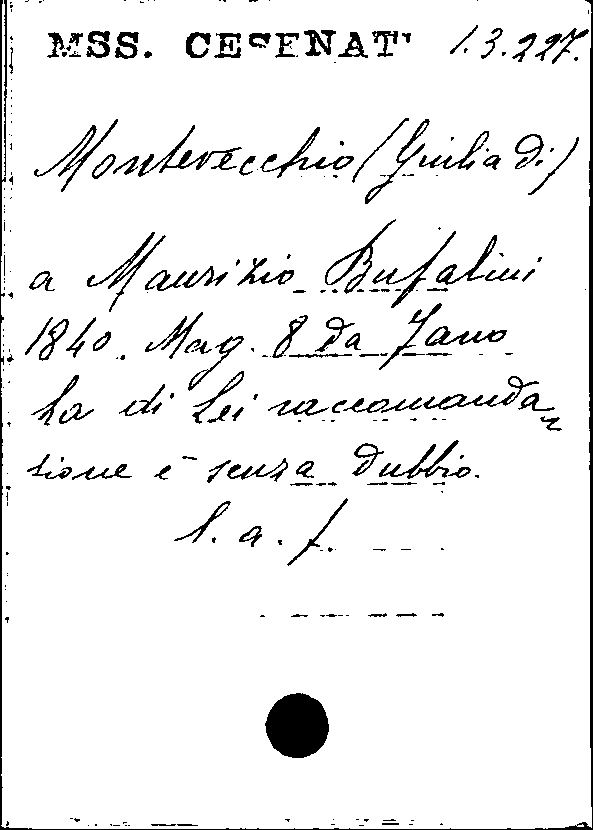 MSS. CESENATI 1.3.227.
Montevecchio (Giulia di)
a Maurizio Bufalini
1840. Mag. 8 da Fano
La di Lei raccomanda=
zione è senza dubbio.
l. a. f.